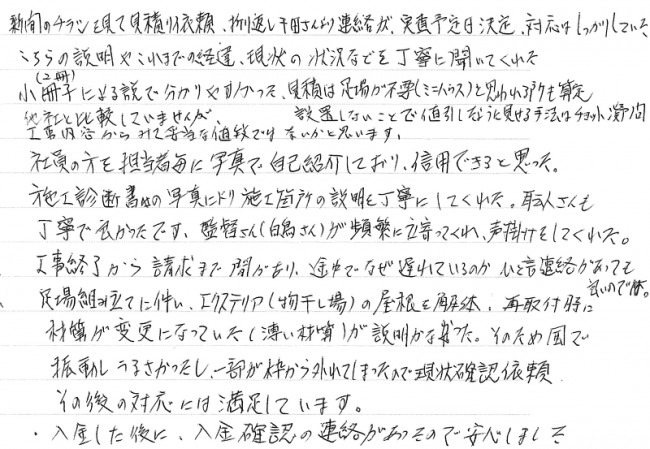 新聞のチラシを見て見積り依頼、折り返し千田さんより連絡が、実査予定日決定、対応はしっかりしていた
こちらの説明やこれまでの経過、現状の状況などを丁寧に聞いてくれた
(2冊)
小冊子による説で分かりやすかった、見積は足場が不要(ミニハウス)と思われる所も算定
他社と比較していませんが、 設置しないことで値引しなように見せる手法はチョット疑問
工事内容からみて妥当な値段ではないかと思います。
社員の方を担当者毎に写真で自己紹介しており、信用できると思った。
施工診断書はの写真により施工箇所の説明も丁寧にしてくれた。職人さんも
丁寧で良かったです、監督さん(白鳥さん)が頻繁に立寄ってくれ、声掛けをしてくれた。
工事終了から請求まで間があり、途中でなぜ遅れているのかひと言連絡があっても
良いのでは。
足場組み立てに伴い、エクステリア(物干し場)の屋根を解体、再取付時に
材質が変更になっていた(薄い材質)が説明がなかった。そのため風で
振動しうるさかったし、一部が枠から外れてしまったので現状確認依頼
その後の対応には満足しています。
・入金した後に、入金確認の連絡があったので安心しました